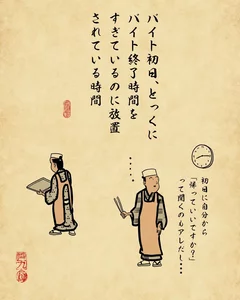 バイト初日、とっくに
バイト終了時間を
すぎているのに放置
されている時間
・・・・
初日に自分から
「帰っていいですか?」
って聞くのもアレだし・・・